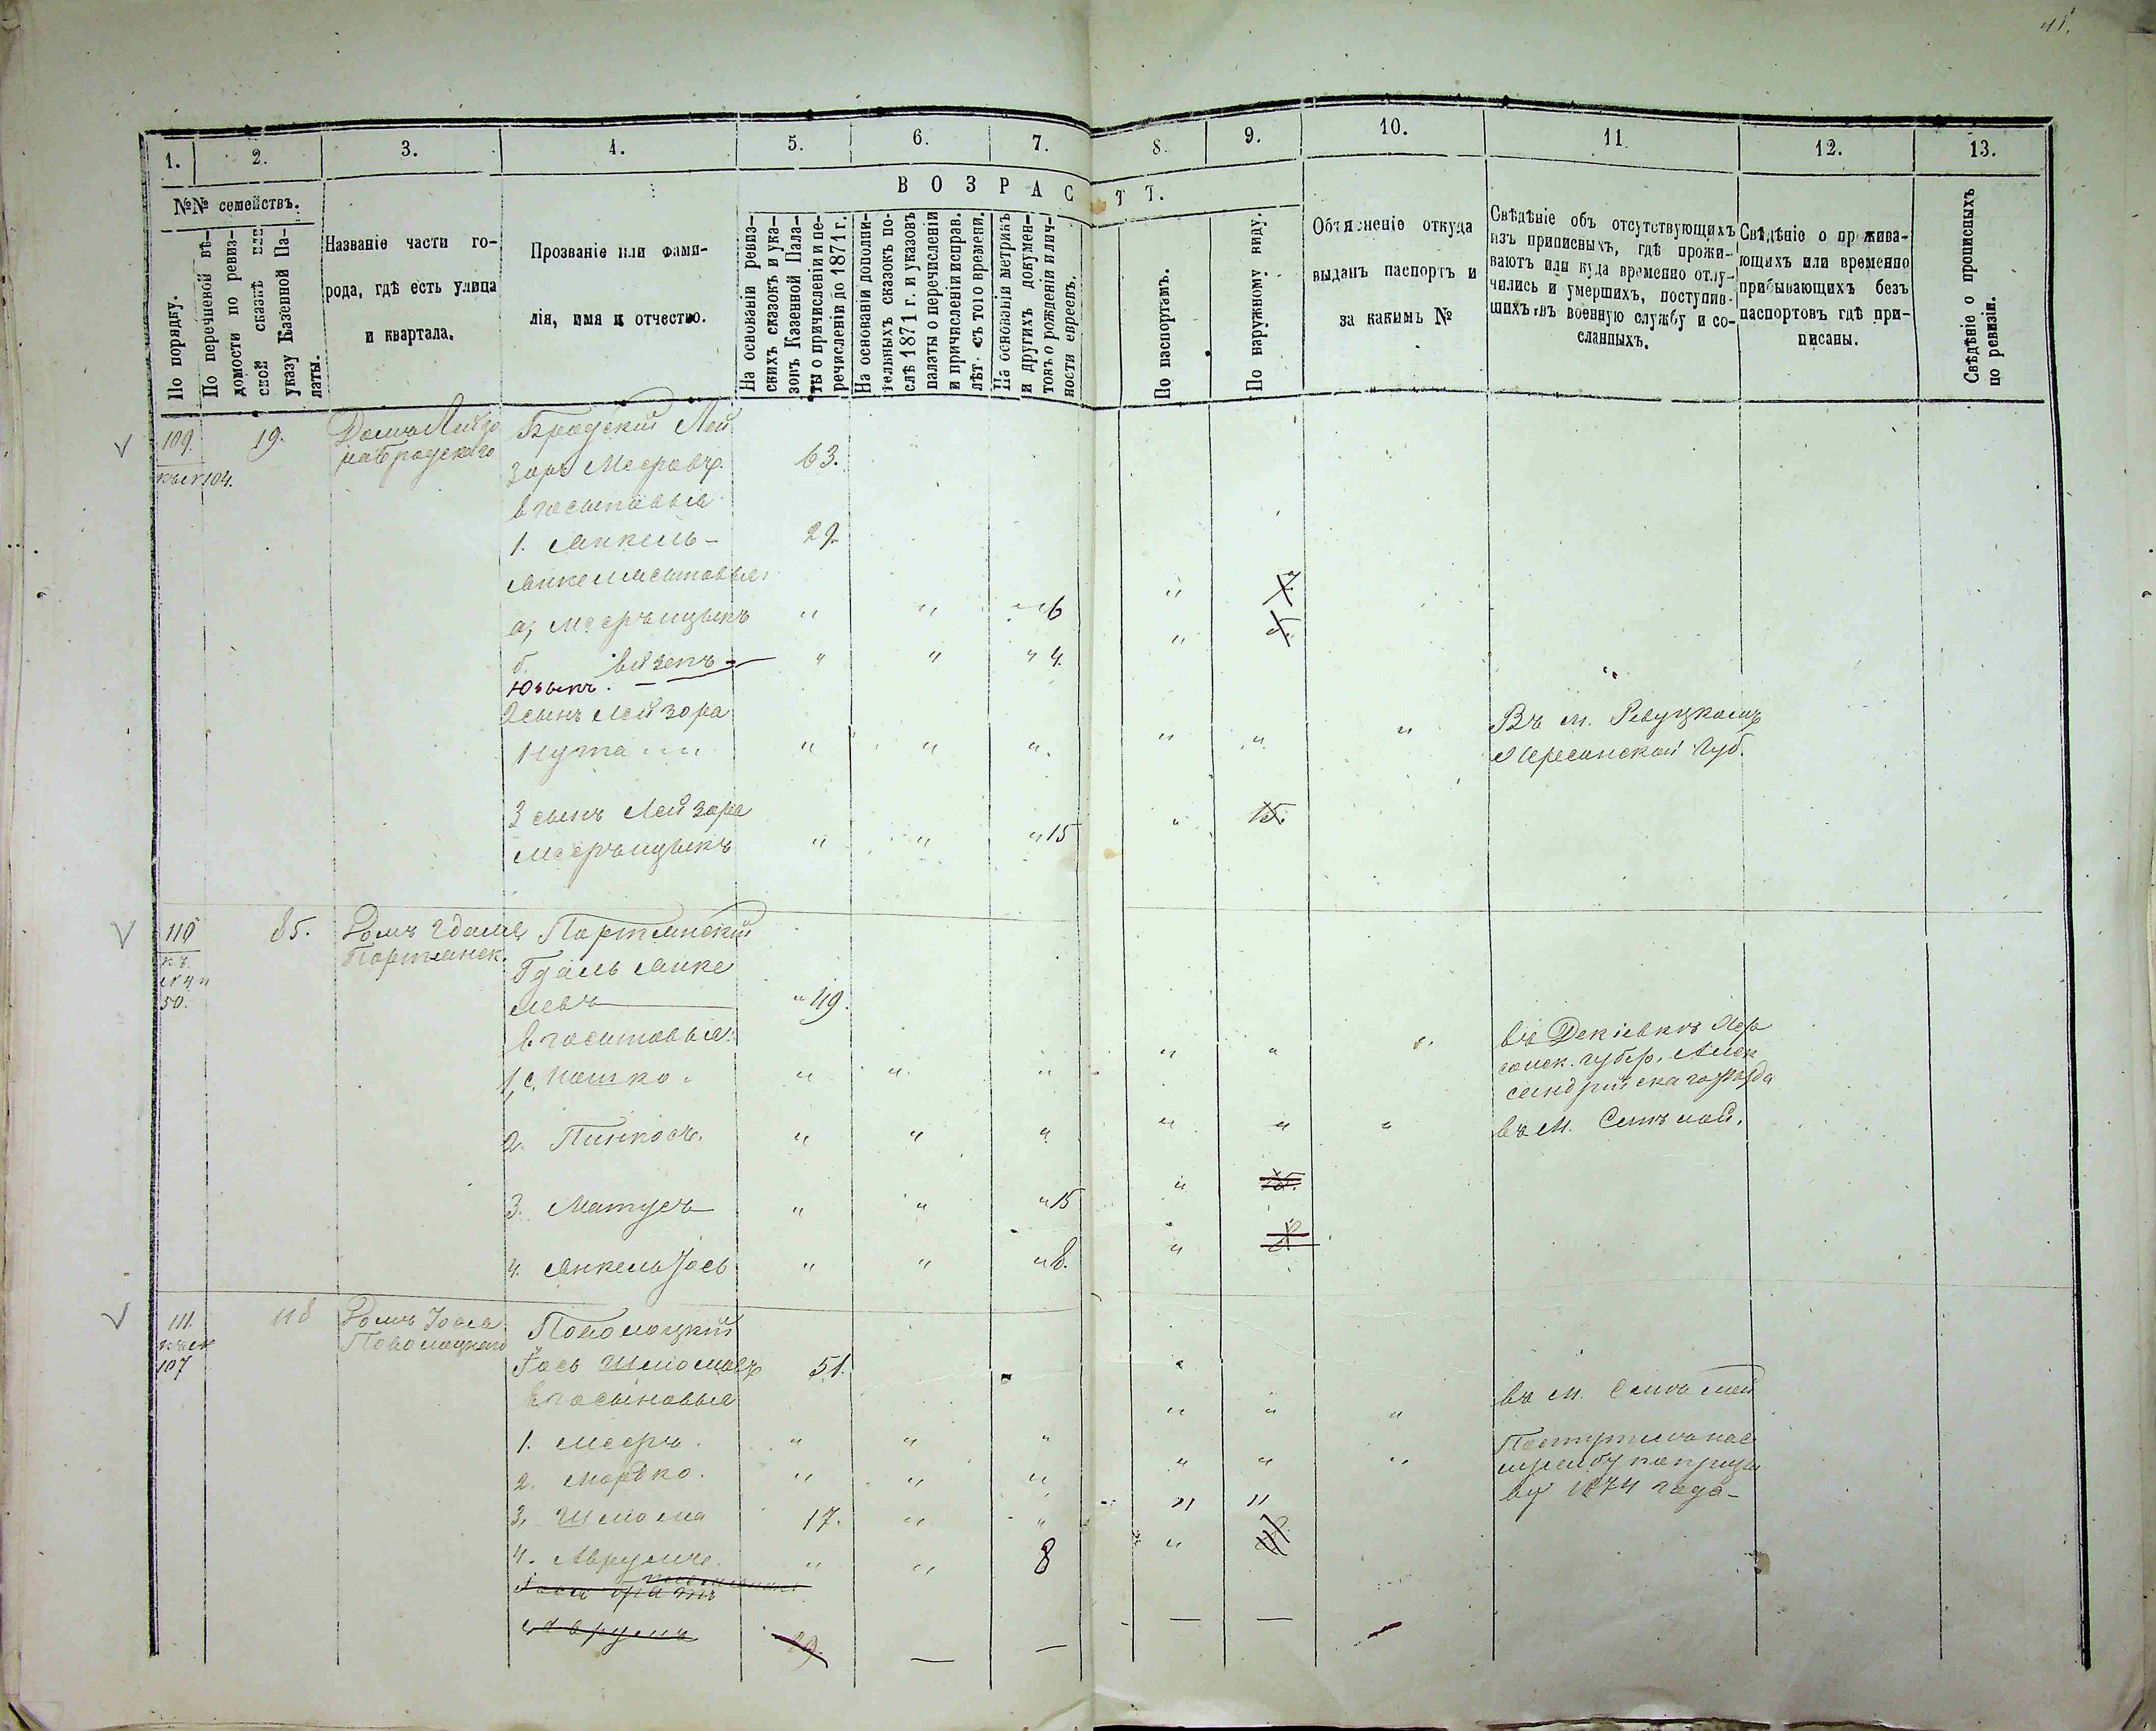 41.
1.
2.
3.
4.
5.
6.
7.
8.
9.
10.
11.
12.
13.
№№ семействъ.
По порядку.
По перечневой вѣ-
домости по ревиз-
ской сказкѣ или
указу Казенной Па-
латы.
Названіе части го-
рода, гдѣ есть улица
и квартала.
Прозваніе или фами-
лія, имя и отчество.
ВОЗРАСТТ.
На основаніи ревиз-
скихъ сказокъ и ука-
зовъ Казенной Пала-
ты о причисленіи и пе-
речисленіи до 1871 г.
На основаніи дополни-
тельныхъ сказокъ по-
слѣ 1871 г. и указовъ
палаты о перечисленіи
и причисленіи исправ.
лѣт. съ того времени.
На основаніи метрикъ
и другихъ докумен-
товъ о рожденіи и лич-
ности евреевъ.
По паспортамъ.
По наружному виду.
Объясненіе откуда
выданъ паспортъ и
за какимъ №
Свѣдѣніе объ отсутствующихъ
изъ приписныхъ, гдѣ прожи-
ваютъ или куда временно отлу-
чились и умершихъ, поступив-
шихъ въ военную службу и со-
сланныхъ.
Свѣдѣніе о прожива-
ющихъ или временно
прибывающихъ безъ
паспортовъ гдѣ при-
писаны.
Свѣдѣніе о прописныхъ
по ревизіи.
109. 19. Домъ Лейзо Бродскій Лей
104. ра Бродскаго зоръ Меєровъ 63.
его сыновья
1. Янкель - 29.
Янкеля сыновья
а, Меєръ Ицыкъ " " " 6 "
б. Ейзепъ " " " 4. "
Юзыпъ.
2 сынъ Лейзора
Нута " " " " " " Въ м. Ревуцкомъ
Херсонской Губ.
3 сынъ Лейзора
Меєръ Ицыкъ " " " 15 " 15.
110 85. Домъ Гдаля Портянскій
къ Портянск. Гдаль Янке
№ 4 и левъ " 49.
50. его сыновья:
1, с. Иошко. " " " " " " въ Декіевкѣ Хер
сонск. губер. Алек
сандрійска го уезда
2. Пинкосъ. " " " " " " въ М. Смѣлой.
3. Матусъ " " " 15 " 15.
4. Янкель Іось " " " 8. " 8
111. 118 Домъ Іося Поволоцкій
107 Поволоцкаго Іось Шлиомовъ 51.
его сыновья
1. Меєръ. " " " " " " въ м. Смѣлой
2. Мордко. " " " " " " Поступилъ на
службу по призы
ву 1874 года -
3, Шлиома 17. " " " "
4. Аврумъ. " " 8 "
Іося братъ
Аврумъ 29. — — — —